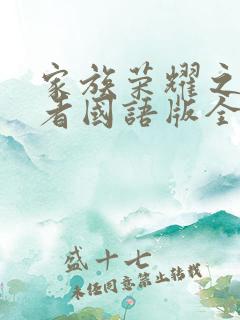 家族荣耀之
者國語版全
盛十七
未经同意禁止转载